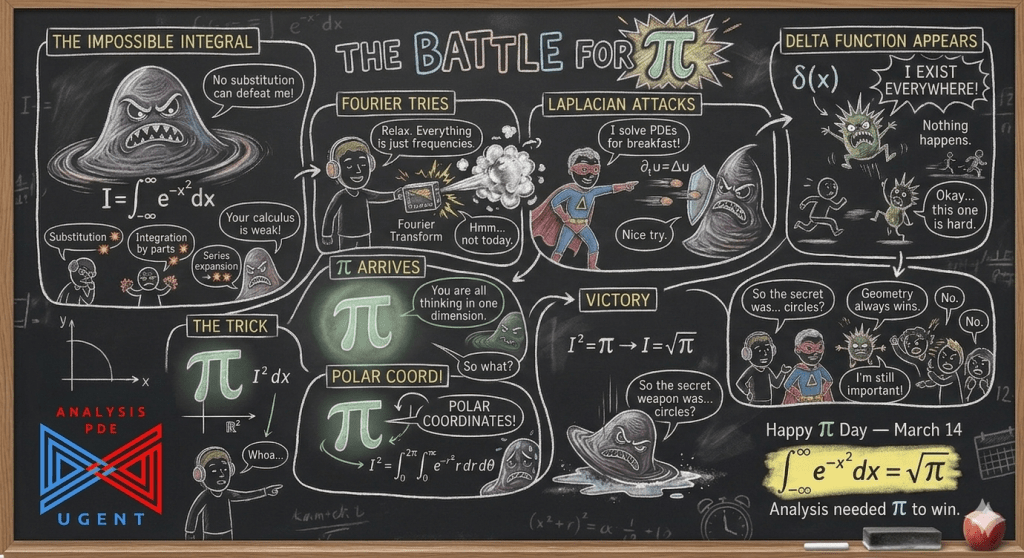 THE BATTLE FOR π
THE IMPOSSIBLE INTEGRAL
No substitution
can defeat me!
I=∫_{-∞}^{∞} e^{-x²} dx
Your calculus
is weak!
Substitution
Integration
by parts
Series
expansion
→
FOURIER TRIES
Relax. Everything
is just frequencies.
Fourier
Transform
Hmm...
not today.
LAPLACIAN ATTACKS
I solve PDEs
for breakfast!
∂ₜu=Δu
Δ
Nice try.
DELTA FUNCTION APPEARS
δ(x)
I EXIST
EVERYWHERE!
Nothing
happens.
Okay...
this one
is hard.
π ARRIVES
π
You are all
thinking in one
dimension.
So what?
THE TRICK
π
I² dx
ℝ²
Whoa...
POLAR COORDI
π
POLAR
COORDINATES!
I²=∫₀^{2π}∫₀^{∞} e^{-r²} r dr dθ
VICTORY
I²=π → I=√π
So the secret
weapon was...
circles?
So the secret
was... circles?
Geometry
always wins.
No.
No.
I'm still
important!
Δ
y
x
ANALYSIS
PDE
UGENT
Happy π Day — March 14
∫_{-∞}^{∞} e^{-x²} dx = √π
Analysis needed π to win.